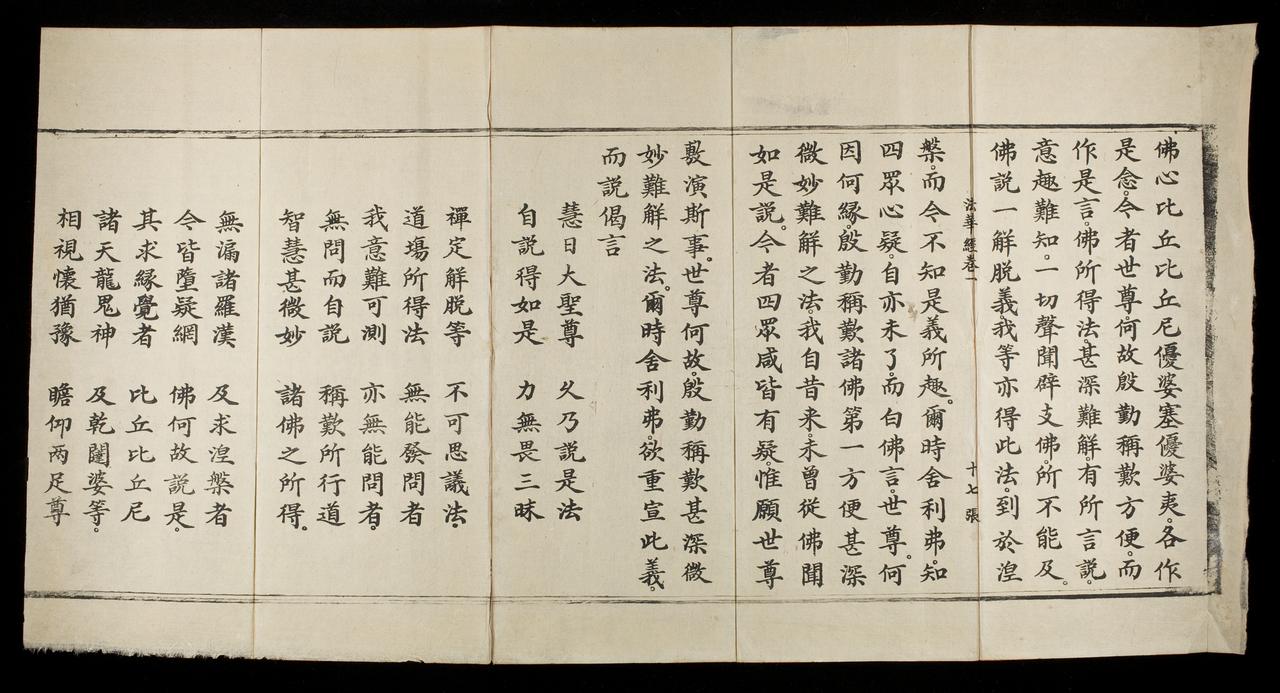 佛心比丘比丘尼優婆塞優婆夷。各作
是念。今者世尊。何故殷勤稱歎方便。而
作是言。佛所得法。甚深難解。有所言說。
意趣難知。一切聲聞辟支佛。所不能及。
佛說一解脫義。我等亦得此法。到於涅
法華經卷一 十七張
槃。而今不知是義所趣。爾時舍利弗。知
四眾心疑。自亦未了。而白佛言。世尊。何
因何緣。殷勤稱歎諸佛第一方便甚深
微妙難解之法。我自昔来。未曾從佛聞
如是說。今者四眾咸皆有疑。惟願世尊
敷演斯事。世尊何故。殷勤稱歎甚深微
妙難解之法。爾時舍利弗。欲重宣此義。
而說偈言
慧日大聖尊 久乃說是法
自說得如是 力無畏三昧
禪定解脫等 不可思議法。
道場所得法 無能發問者
我意難可測 亦無能問者。
無問而自說 稱歎所行道
智慧甚微妙 諸佛之所得。
無漏諸羅漢 及求涅槃者
今皆墮疑網 佛何故說是。
其求緣覺者 比丘比丘尼
諸天龍鬼神 及乾闥婆等。
相視懷猶豫 瞻仰两足尊